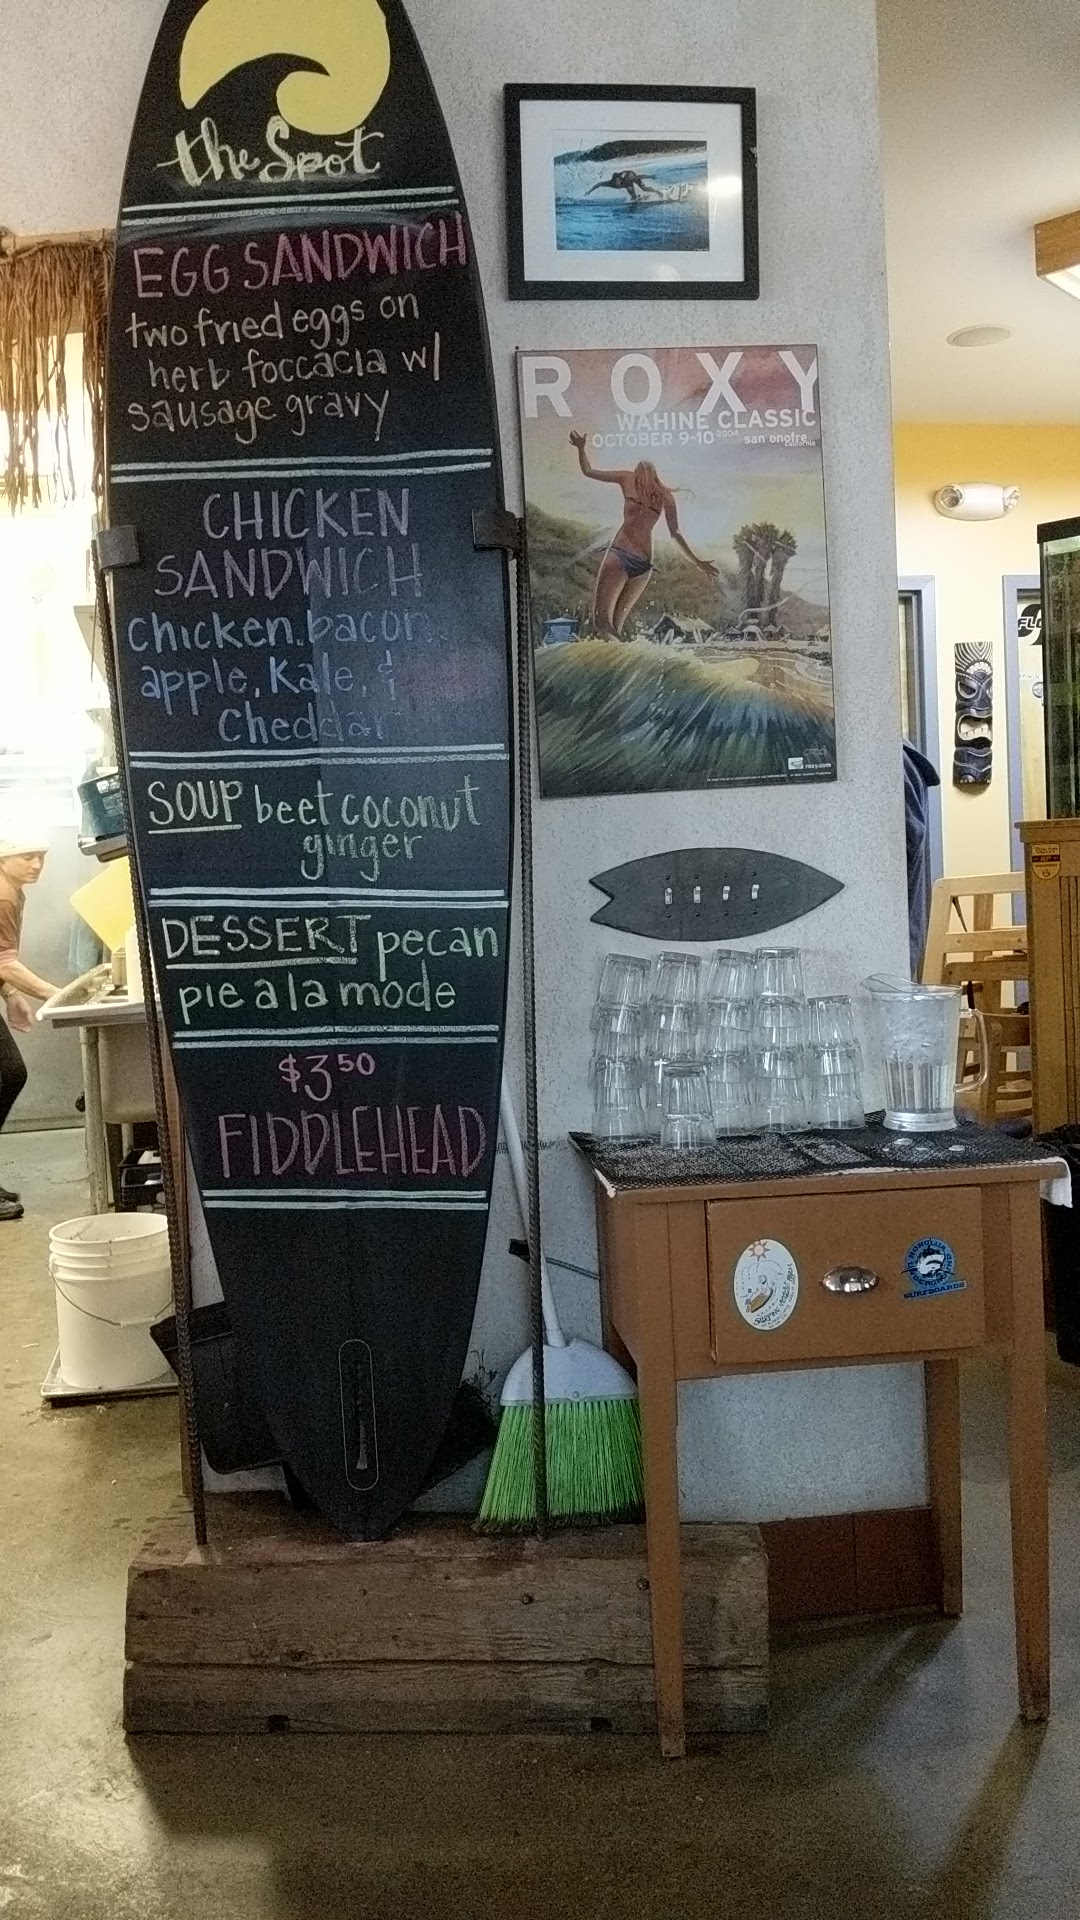 the Spot
EGG SANDWICH
two fried eggs on
herb foccacia w/
sausage gravy
CHICKEN
SANDWICH
chicken, bacon,
apple, Kale, &
Cheddar
SOUP beet coconut
ginger
DESSERT pecan
pie a la mode
$3 50
FIDDLEHEAD
ROXY
WAHINE CLASSIC
OCTOBER 9-10 2004 san onofre
california
roxy.com
HONOLUA
SURFBOARDS